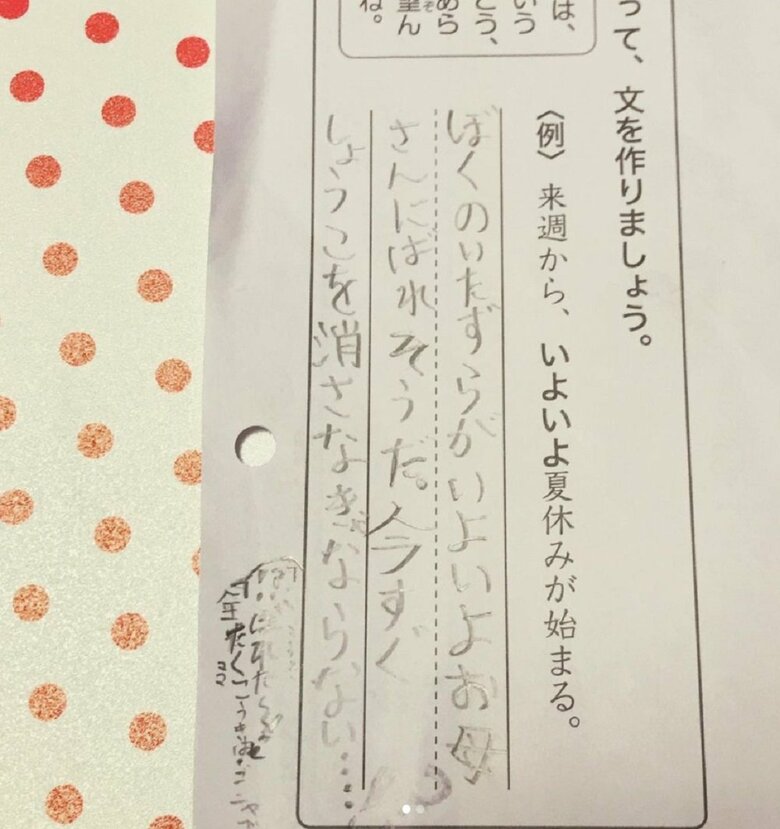 って、文を作りましょう。
〈例〉来週から、いよいよ夏休みが始まる。
ぼくのいたずらがいよいよお母
さんにばれそうだ。今すぐ
しょうこを消さなきゃならない……
は、
いう
とう、
めら
望ん
ぞ
ね。